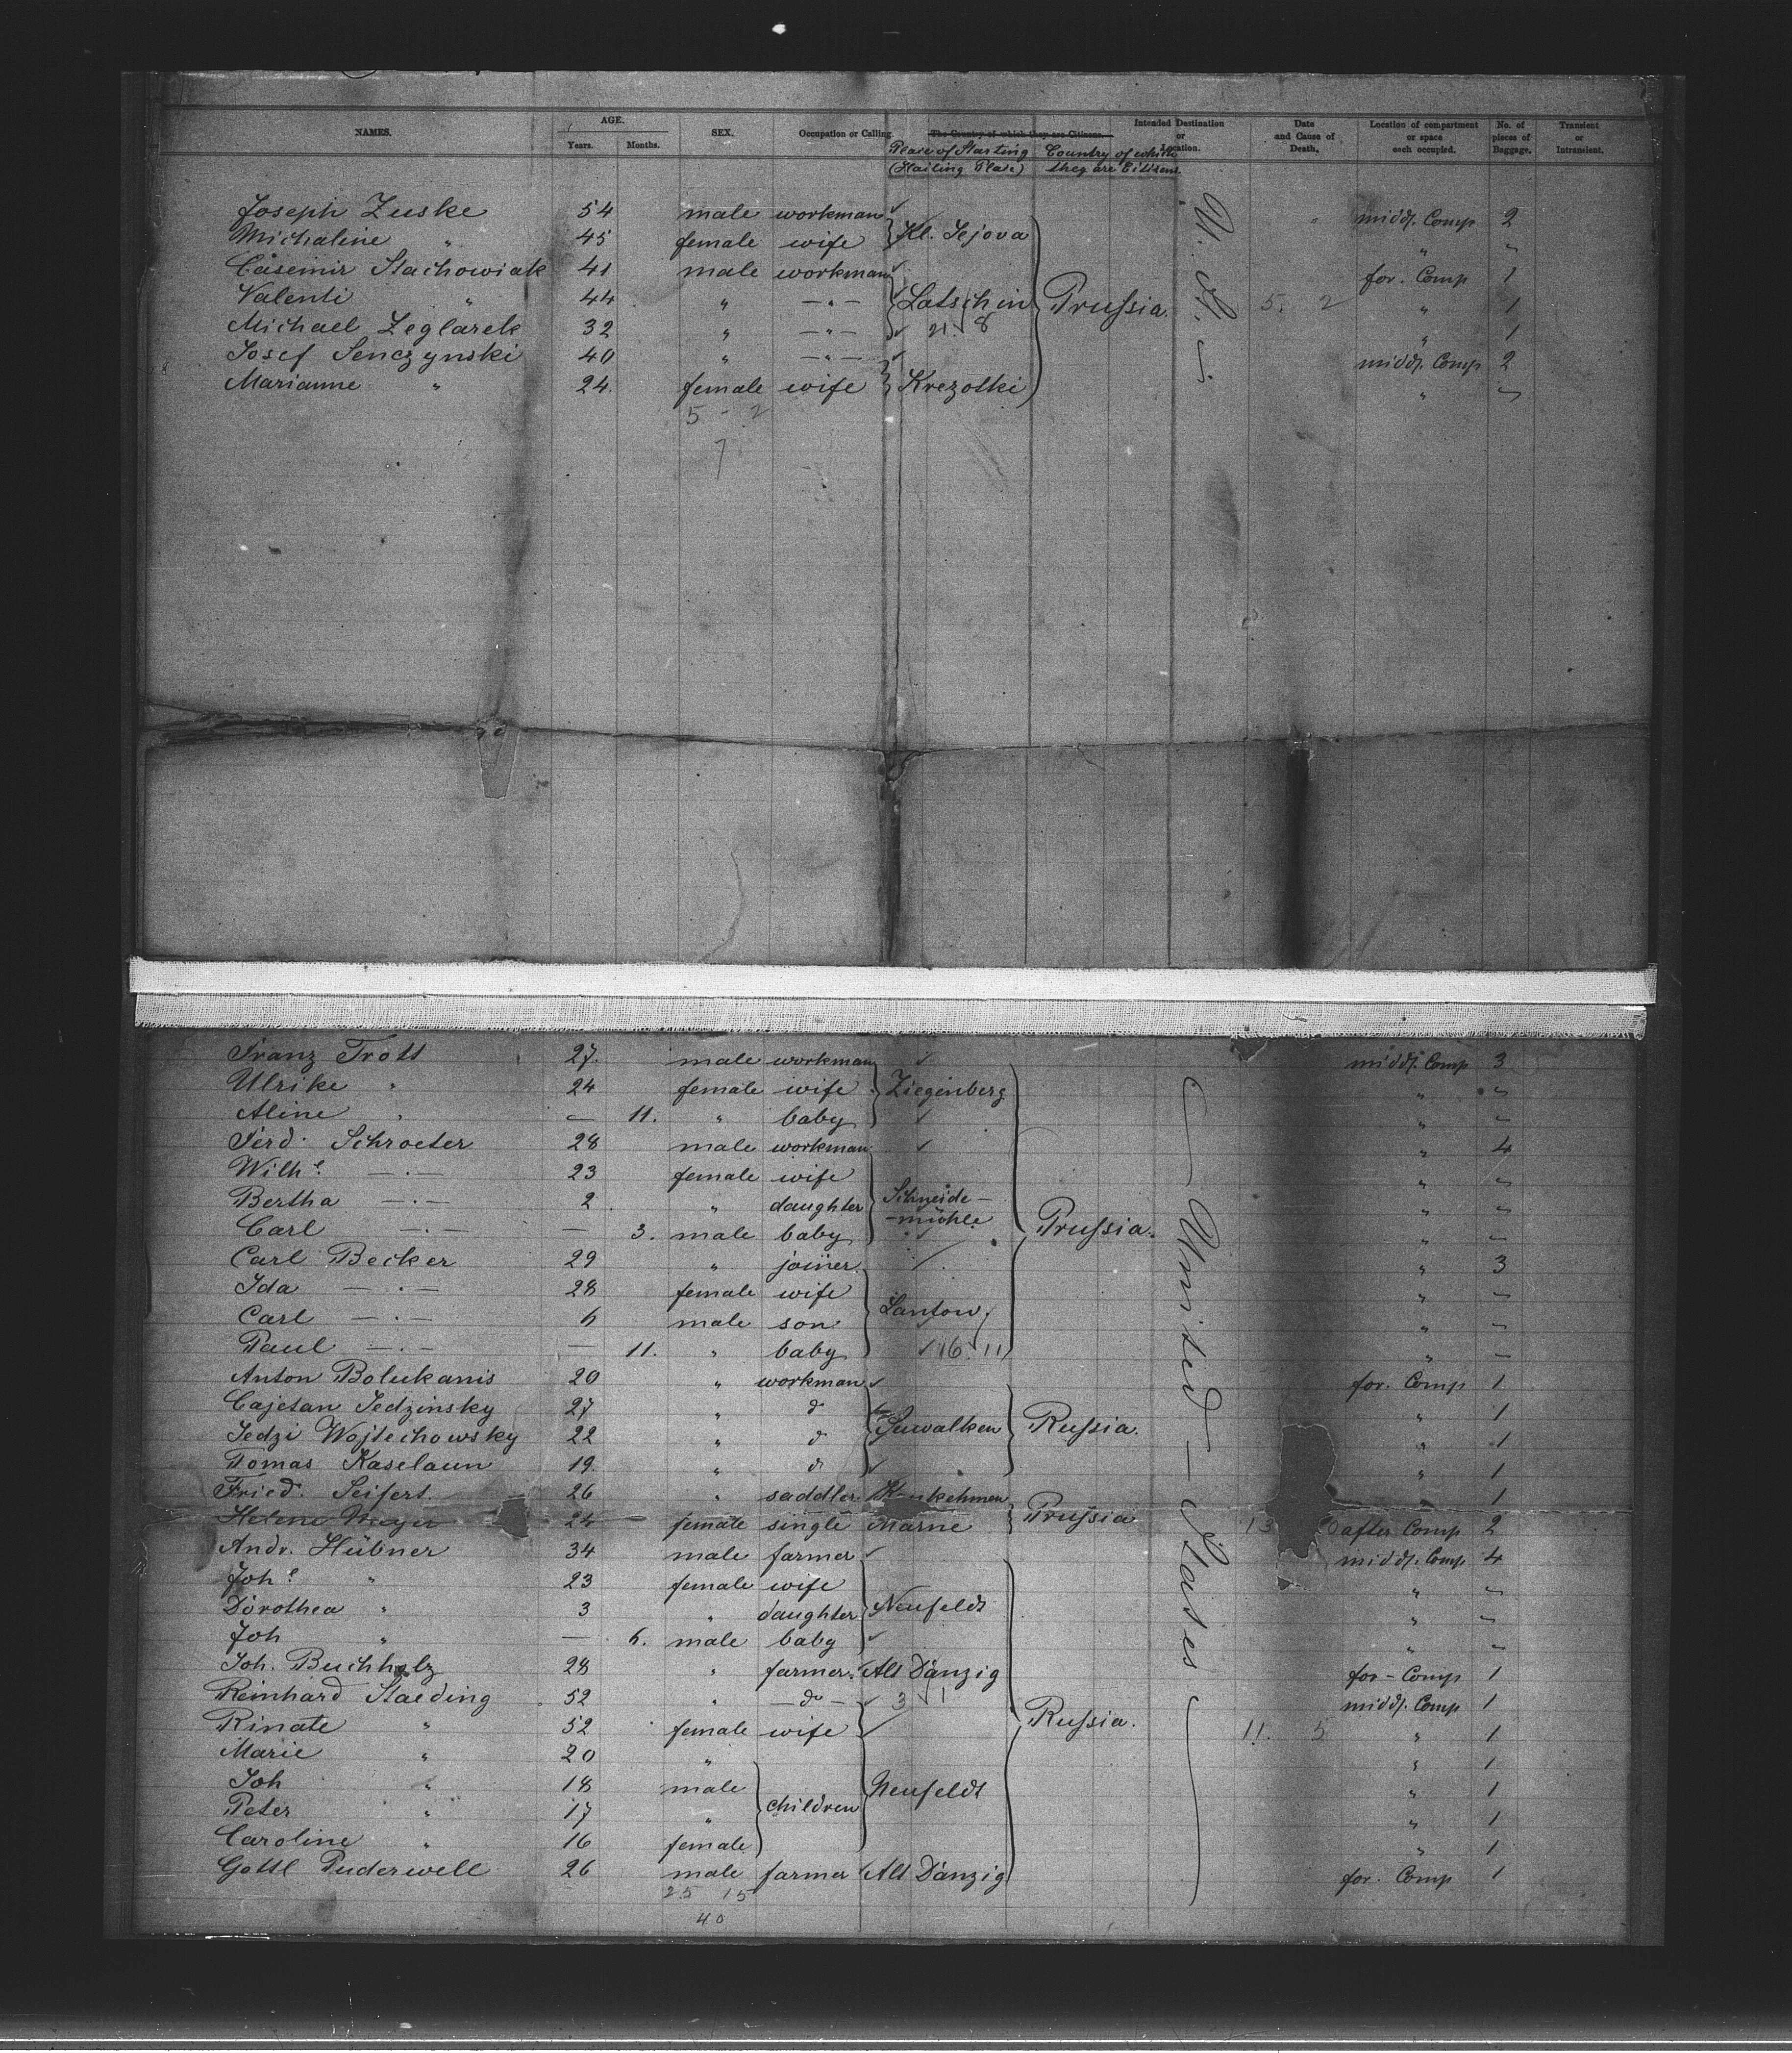 NAMES. AGE. SEX. Occupation or Calling. The Country of which they are Citizens. Intended Destination or Location. Date and Cause of Death. Location of compartment or space each occupied. No. of pieces of Baggage. Transient or Intransient.
Years. Months. Place of Starting (Hailing Place) Country of which they are Citizens.
Joseph Zuske 54 male workman Kl. Jejova Prussia. U. St. middl. Comp 2
Michaline " 45 female wife " "
Casemir Stachowiak 41 male workman for. Comp 1
Valenti " 44 " — " — Latschin 5. 2 " 1
Michael Zeglarek 32 " — " — 21 8 " 1
Josef Senczynski 40 " — " — middl. Comp 2
Marianne " 24. female wife Krezolki " "
5 - 2
7
Franz Trott 27. male workman middl. Comp 3
Ulrike " 24 female wife Ziegenberg " "
Aline " — 11. " baby " "
Ferd. Schroeter 28 male workman " 4
Wilh.e — . — 23 female wife " "
Bertha — . — 2 " daughter Schneide- " "
Carl — . — — 3. male baby -mühle Prussia. United States " "
Carl Becker 29 " joiner " 3
Ida — . — 28 female wife " "
Carl — . — 6 male son Lantow " "
Paul — . — — 11. " baby 16 11 " "
Anton Bolukanis 20 " workman for. Comp 1
Cajetan Jedzinsky 27 " do " 1
Jedzi Wojtechowsky 22 " do Suwalken Russia. " 1
Tomas Kaselaun 19. " do " 1
Fried. Seifert 26 " saddler 1
Helene Meyer 24 female single Marne Prussia 13 after Comp 2
Andr. Hübner 34 male farmer middl. Comp 4
Joh.e " 23 female wife " "
Dorothea " 3 " daughter Neufeldt " "
Joh " — 6. male baby " "
Joh. Buchholz 28 " farmer. Alt Danzig for - Comp 1
Reinhard Staeding 52 " — do — 3 1 middl. Comp 1
Rinate " 52 female wife Russia. 11. 5 " 1
Marie " 20 " " 1
Joh " 18 male children Neufeldt " 1
Peter " 17 " " 1
Caroline " 16 female " 1
Gottl Puderwell 26 male farmer Alt Danzig for. Comp 1
25 15
40